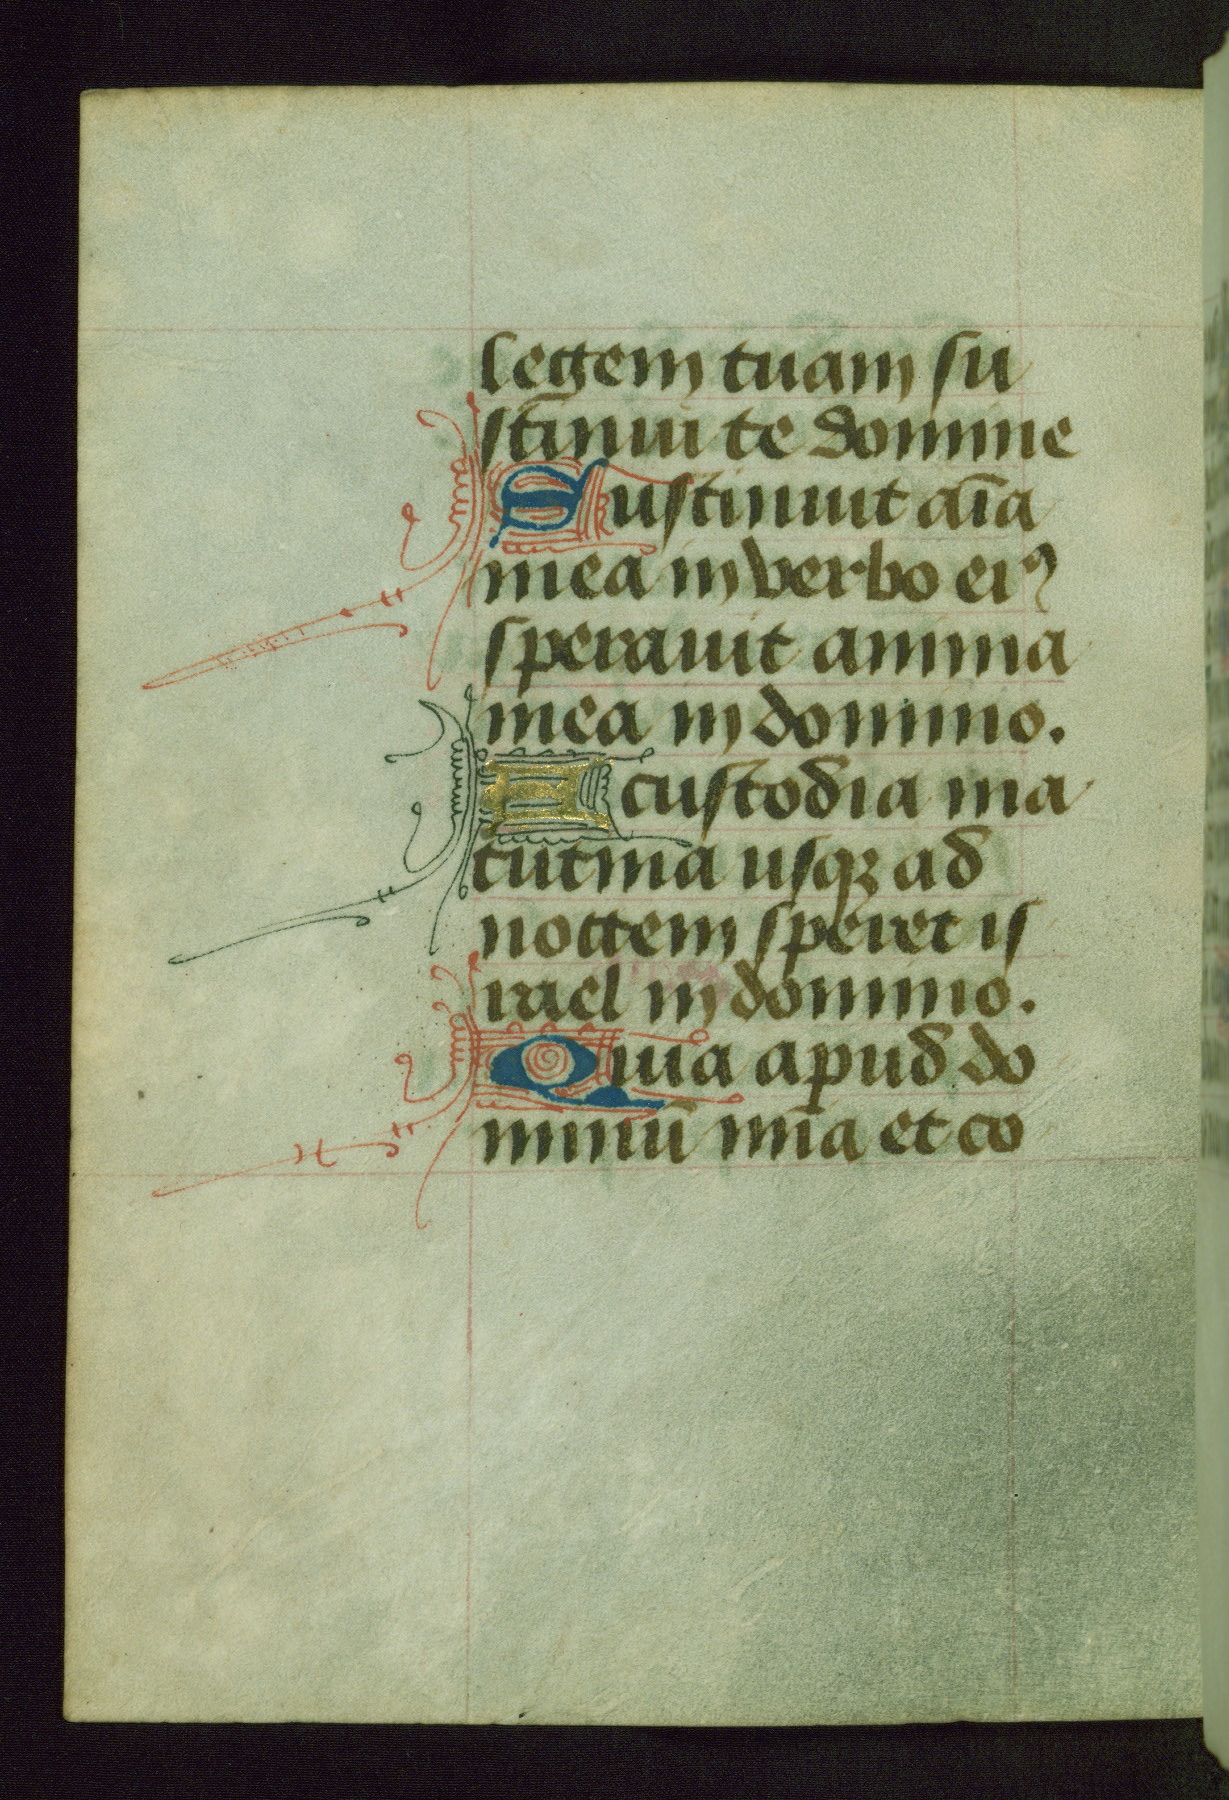 legem tuam su
stinui te domine
Sustinuit aīa
mea in verbo eiꝰ
sperauit anima
mea in domino.
A custodia ma
tutina usqꝫ ad
noctem speret is
rael in domino.
Quia apud do
minū mīa et co